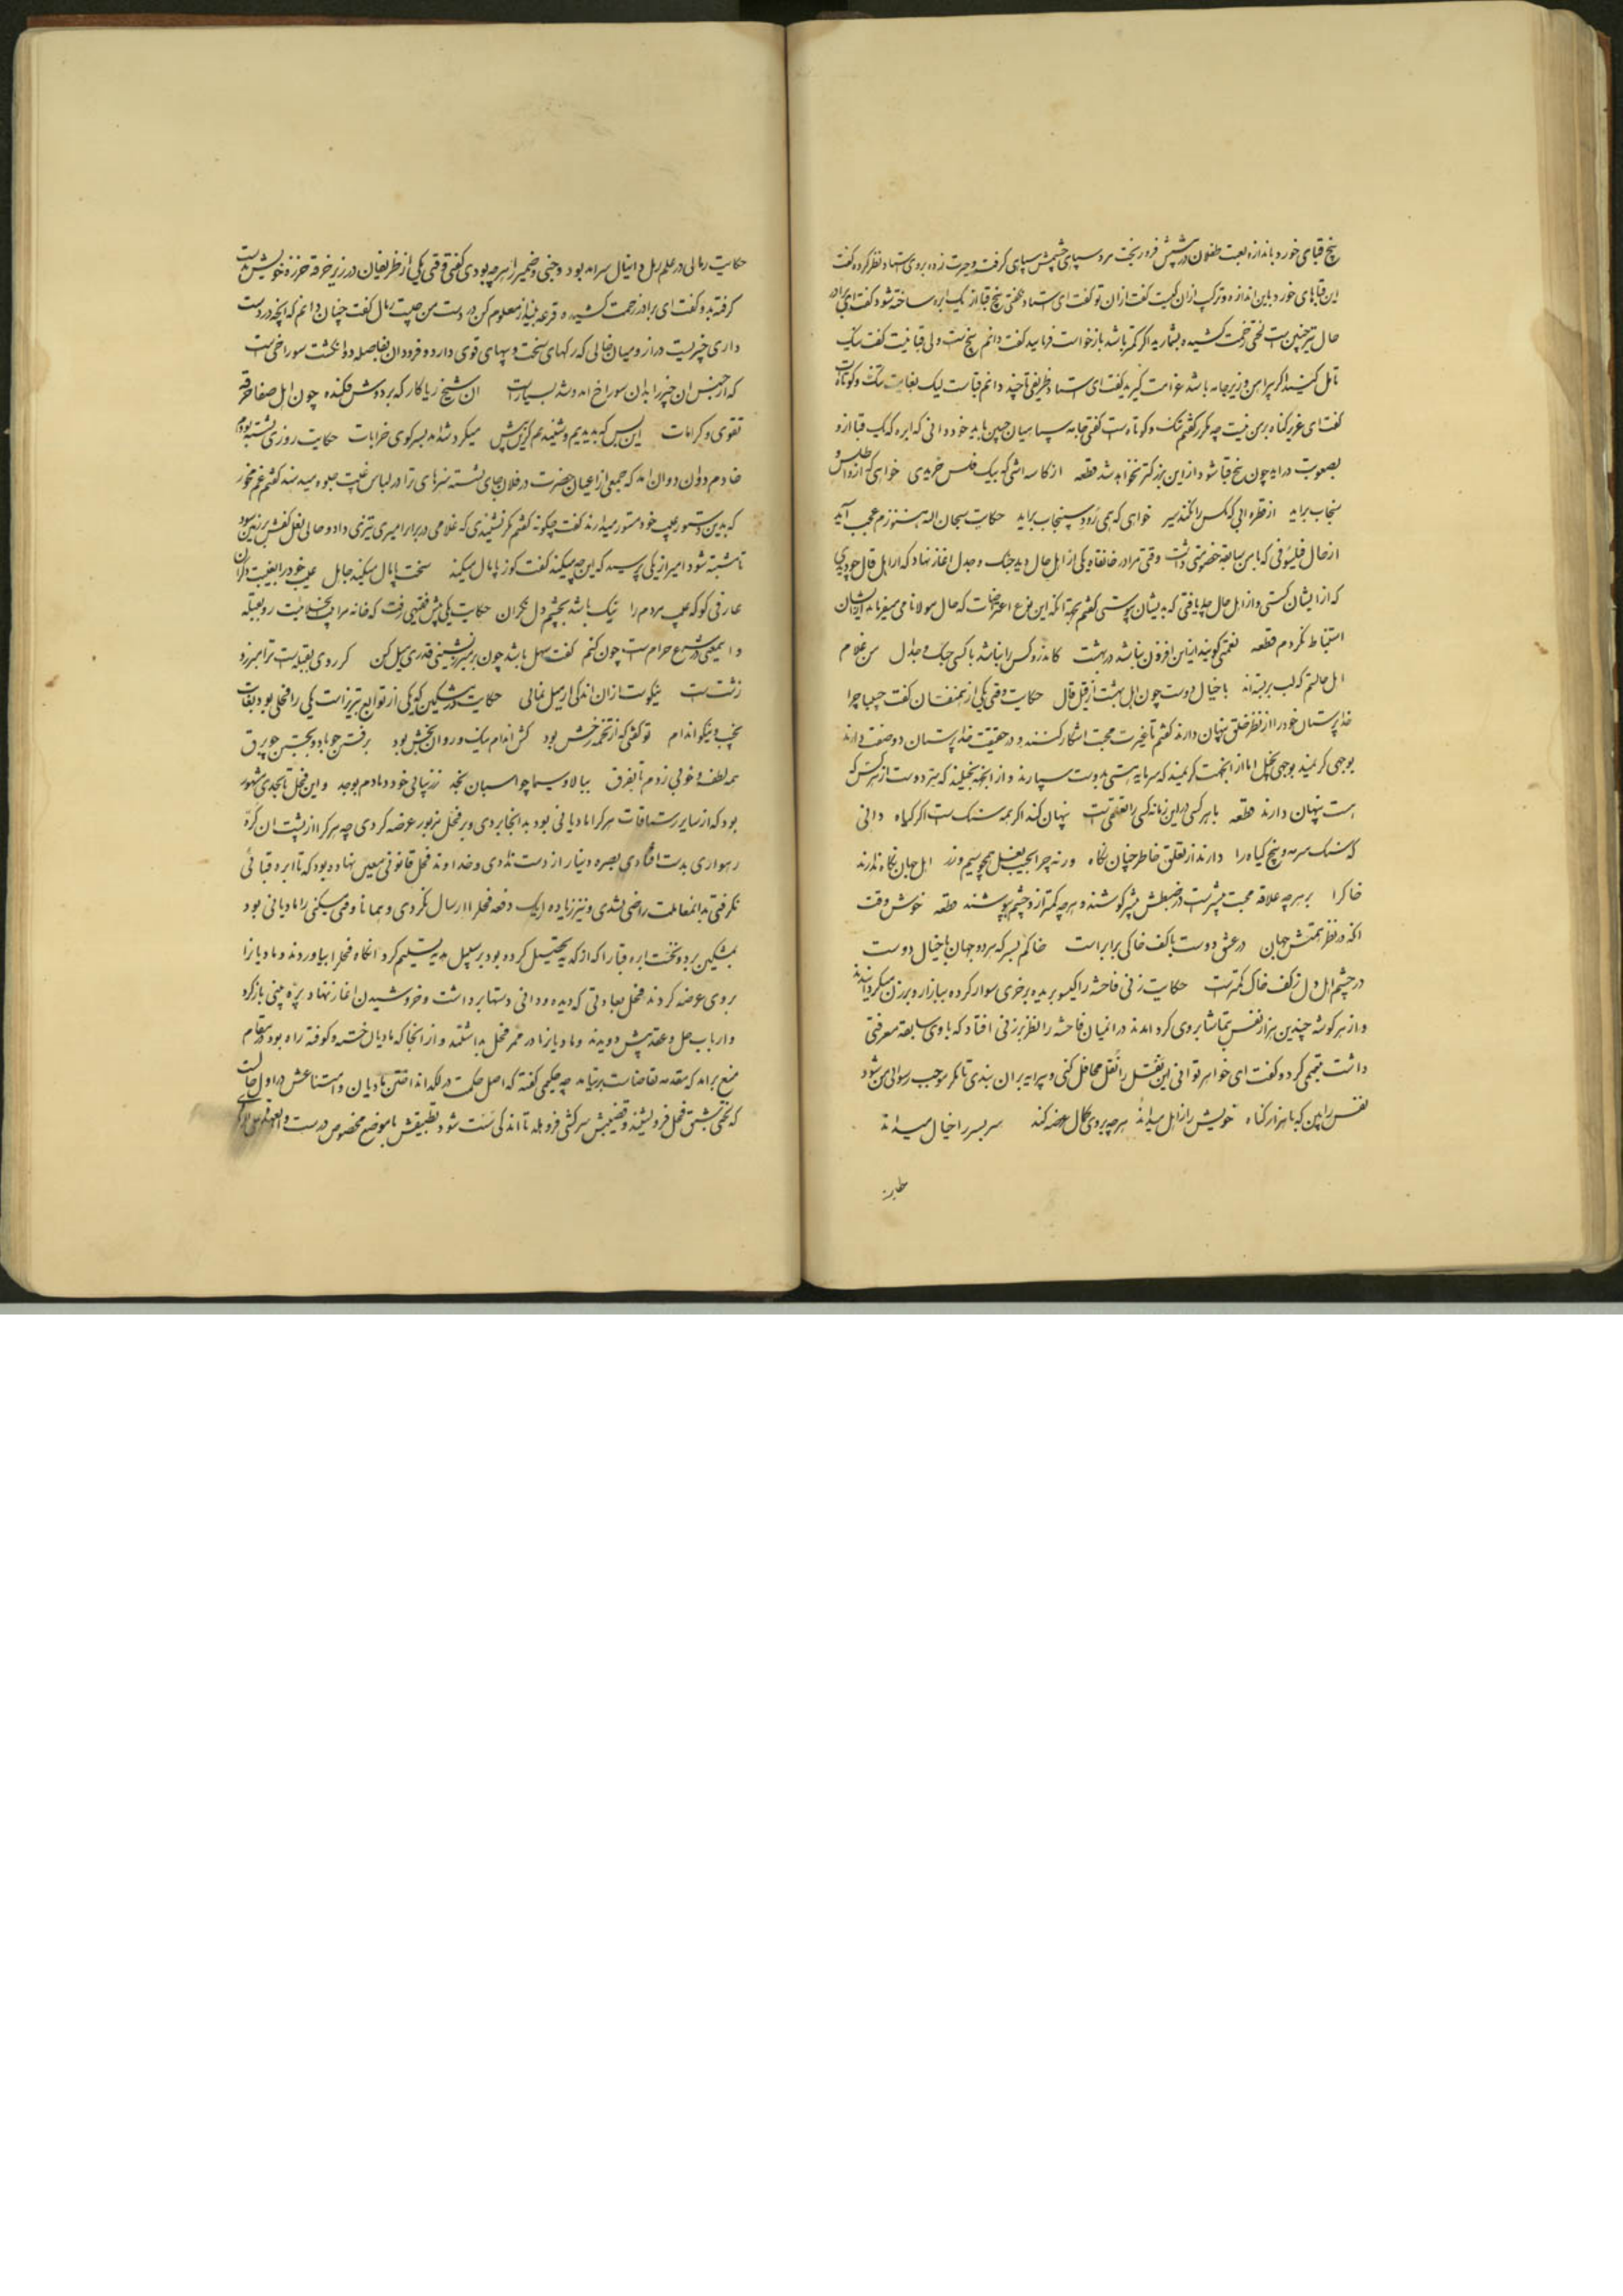 پنج قبای خورد باندازه لعبت طفلان در پیشش فرو ریخت مرد سپاهی چشمش سیاهی گرفت و حیرت زده بروی استاد نظر کرده گفت
این قباهای خورد باین اندازه و ترکیب ازان کیست گفت ازان تو گفت ای استاد نگفتی پنج قبا از یک ابره ساخته شود گفت ای برادر
حال نیز چنین است لختی زحمت کشیده بشمارید اگر کمتر باشد بازخواست فرمایید گفت دانم پنج است ولی قبا نیست گفت نیک
تامل کنید اگر پیراهن و زیرجامه باشد غرامت گیرید گفت ای استاد ظریفی تا چند دانم قباست لیک بغایت تنگ و کوتاه است
گفت ای عزیز گناه بر من نیست چه مکرر گفتم تنگ و کوتاه است گفتی جامه سپاهیان چنین باید خود دانی که ابره که یک قبا ازو
بصعوبت در اید چون پنج قبا شود از این بزرکتر نخواهد شد قطعه از کاسه اشی که بیک فلس خریدی خواهی که ازو اطلس و
سنجاب براید از قطره ابی که مکس را نکند سیر خواهی که همی رود و سنجاب براید حکایت سبحان الله هنوزم عجب آید
از حال فیلسوفی که با من سابقه خصومتی داشت وقتی مرا در خانقاه یکی از اهل حال دید جنگ و جدل اغاز نهاد که از اهل قال چه دیدی
که از ایشان گسستی و از اهل حال چه یافتی که بدیشان پیوستی گفتم بجهة انکه این نوع اعتراضات که حال مولانا می‌فرماید از ایشان
استنباط نکردم قطعه نعمتی گویند ازین افزون نباشد در بهشت کاندرو کس را نباشد با کسی جنگ و جدال من غلام
اهل حالم کز لب بربسته اند با خیال دوست چون اهل بهشت از قیل قال حکایت وقتی یکی از متعنفسان گفت حبیبا چرا
خداپرستان خود را از نظر خلق پنهان دارند گفتم تا غیرت محبت اشکار کنند و در حقیقت خداپرستان دو صفت دارند
بوجهی کریمند بوجهی بخیل اما از انجهت کریمند که سرمایه هستی بدوست سپارند و از انجهة بخیلند که سر دوست از هر کس که
هست پنهان دارند قطعه با هر کسی در این زمانه کسی را تعلقی است پنهان کند اگر همه سنک است اگر گیاه دانی
که سنک سرمه و پنج گیاه را دارند از تعلق خاطر چنان نگاه ورنه چرا بجیب و بغل همچو سیم و زر اهل جهان نگاه ندارند
خاک را بر هر چه علاقه محبت بیشتر است در ضبطش بیشتر کوشند و هر چه کمتر ازو چشم پوشند قطعه خوش وقت
انکه در نظر همتش جهان در عشق دوست با کف خاکی برابر است خاکم بسر که هر دو جهان با خیال دوست
در چشم اهل دل ز کف خاک کمتر است حکایت زنی فاحشه را گیسو بریده بر خری سوار کرده ببازار و برزن میگردانیدند
و از هر گوشه چندین هزار نفس بتماشا بروی گرد امدند در انمیان فاحشه را نظر بر زنی افتاد که با وی سابقه معرفتی
داشت تبسمی کرد و گفت ای خواهر توانی این نقل را نقل محافل کنی و پیرایه بران بندی تا مگر موجب رسوایی من شود
نفس را بین که با هزار گناه خویش را ز اهل میداند هر چه بر وی کمال عرضه کند سر بسر را خیال میداند
حکایت رمالی در علم رمل دانیال سرامد بود و جنی و ضمیر از هر چه بودی گفتی وقتی یکی از ظریفان در زیر خرقه خرزه خویش بدست
گرفته بدو گفت ای برادر زحمت کشیده قرعه بینداز معلوم کن در دست من چیست رمال گفت چنان دانم که انچه در دست
داری چیزیست دراز و میان خالی که رکهای سخت و پیهای قوی دارد و فرود ان بفاصله دو انگشت سوراخی است
که از جنس ان چیز را بدان سوراخ امد و شد بسیار است ان شیخ ریاکار که بر دوش فکنده چون اهل صفا خرقه
تقوی و کرامات این بس که بدیدیم و شنیدیم کزین پیش میکرد شد امد بسر کوی خرابات حکایت روزی نشسته بودم
خادم دوان دوان امد که جمعی از اعیان حضرت در فلان جای نشسته هنرهای ترا در لباس غیبت جلوه میدهند گفتم غم مخور
که بدین دستور عیب خود مستور میدارند گفت چگونه گفتم مگر نشنیدی که غلامی در برابر امیری تیزی داد و حالی نعل کفش بر زمین سود
تا مشتبه شود امیر از یکی پرسید که این چه میکند گفت گوز پامال میکند سخت پامال میکند جاهل عیب خود را بغیبت دگران
عارفی کو که عیب مردم را نیک باشد بچشم دل نگران حکایت یکی پیش فقیهی رفت که خانه مرا بیت الخلائیست رو بقبله
و اینمعنی در شرع حرام است چون کنم گفت سهل باشد چون بر سر نشینی قدری میل کن گر روی بقبله‌ات ترا مبرزد
زشت است نیکوست ازان اندکی ار میل نمایی حکایت در مشکین که یکی از توابع تبریز است یکی را فحلی بود بغایت
نجیب و نیکو اندام تو گفتی که از تخمه رخش بود کش اندام نیک و روان بخش بود برفتن چو باد و بجستن چو برق
همه لطف و خوبی ز دم تا بفرق ببالا و سیما چو اسبان نجد ز زیبایی خود دمادم بوجد و این فحل تا بحدی مشهور
بود که از سایر رستاقات هر که را مادیانی بود بدانجا بردی و بر فحل مزبور عرضه کردی چه هر که را از پشت ان کره
رهواری بدست افتادی بصره دینار از دست ندادی و خداوند فحل قانونی معین نهاده بود که تا ابره قبائی
نگرفتی بدانمعاملت راضی نشدی و نیز زیاده از یک دفعه فحل را ارسال نکردی و همانا وقتی مسکینی را مادیانی بود
بمشکین برد و نخست ابره قبا را که از کدیه تحصیل کرده بود بر سبیل هدیه تسلیم کرد انگاه فحل را بیاوردند و مادیانرا
بر وی عرضه کردند فحل بعادتی که دیده و دانی دستها برداشت و خروشیدن اغاز نهاد و پره بینی باز کرد
و ارباب حل و عقد پیش دویدند و مادیانرا در ممر فحل بداشتند و از انجا که مادیان خسته و کوفته راه بود در مقام
منع برامد که مقدمه تقاضاست بر نیامد چه حکیمی گفته که اصل حکمت در لکد انداختن مادیان و امتناعش در اول حالت
که لختی پشت فحل فرو نشیند و قضیبش سرکشی فرو هلد تا اندکی سست شود و تطبیقش با موضع مخصوص درست